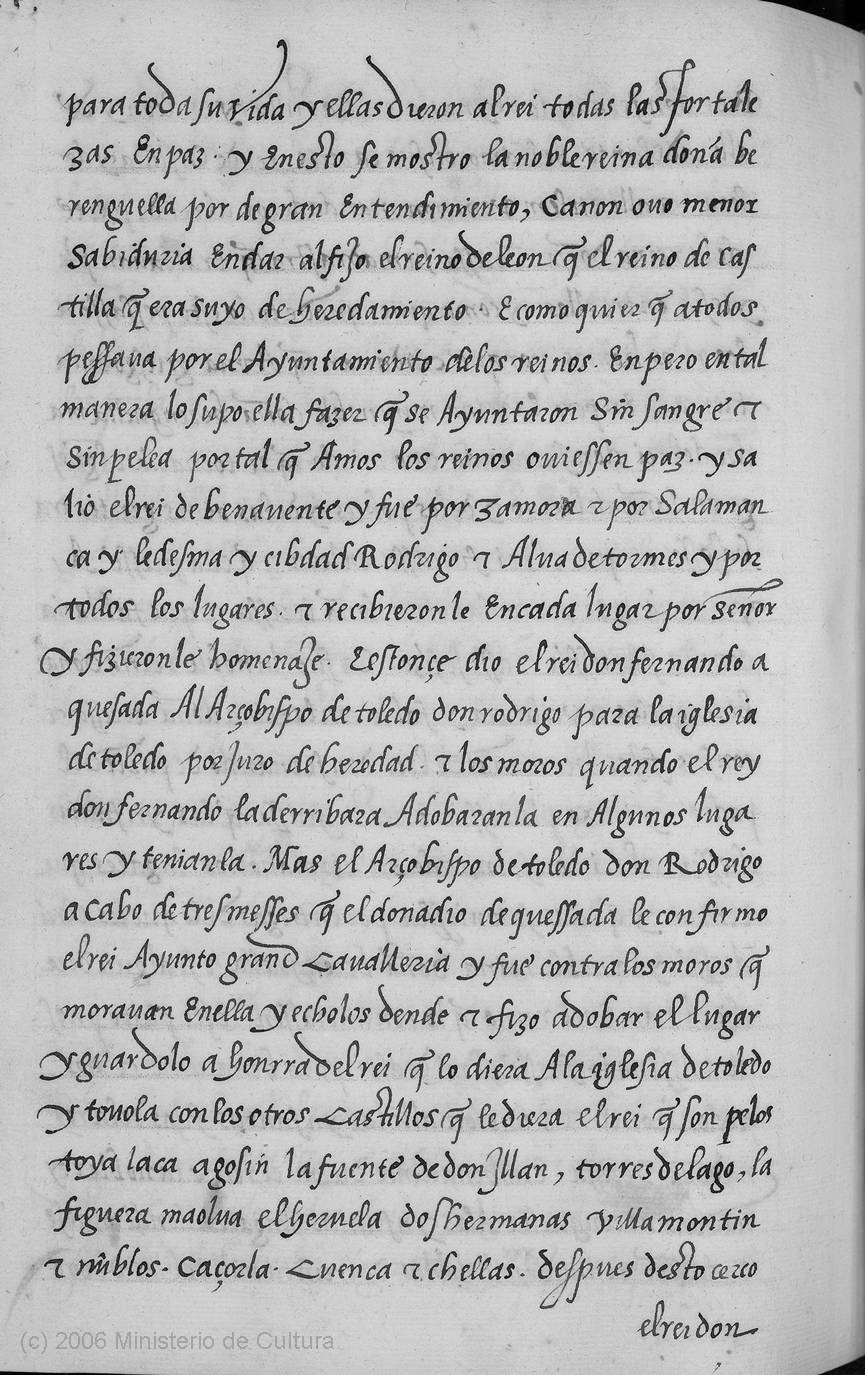 para toda su vida y ellas dieron al rei todas las fortale
zas En paz · y Enesto se mostro la noble reina doña be
renguella por de gran Entendimiento, Ca non ouo menor
Sabiduria Endar al fijo el reino de leon q̃ el reino de Cas
tilla q̃ era suyo de heredamiento · E como quier q̃ a todos
pessaua por el Ayuntamiento delos reinos · En pero en tal
manera lo supo ella fazer q̃ se Ayuntaron Sin sangre τ
Sin pelea por tal q̃ Amos los reinos ouiessen paz · y sa
lio el rei de benauente y fue por Zamora τ por Salaman
ca y ledesma y cibdad Rodrigo τ Alua de tormes y por
todos los lugares · τ recibieronle Encada lugar por señor
y fizieronle homenaje · E estonçe dio el rei don fernando a
quesada Al Arçobispo de toledo don rodrigo para la iglesia
de toledo por Juro de heredad · τ los moros quando el rey
don fernando la derribara Adobaranla en Algunos luga
res y tenianla . Mas el Arçobispo de toledo don Rodrigo
a Cabo de tres messes q̃ el donadio de quessada le confirmo
el rei Ayunto grand Cavalleria y fue contra los moros q̃
morauan Enella y echolos dende τ fizo adobar el lugar
y guardolo a honrra del rei q̃ lo diera A la iglesia de toledo
y touola con los otros Castillos q̃ le diera el rei q̃ son pelos
toya laca agosin la fuente de don Jllan, torres de lago, la
figuera maolua elheruela dos hermanas villa montin
τ nũblos · Caçorla · Cuenca τ chellas . despues desto cerco
el rei don
(c) 2006 Ministerio de Cultura